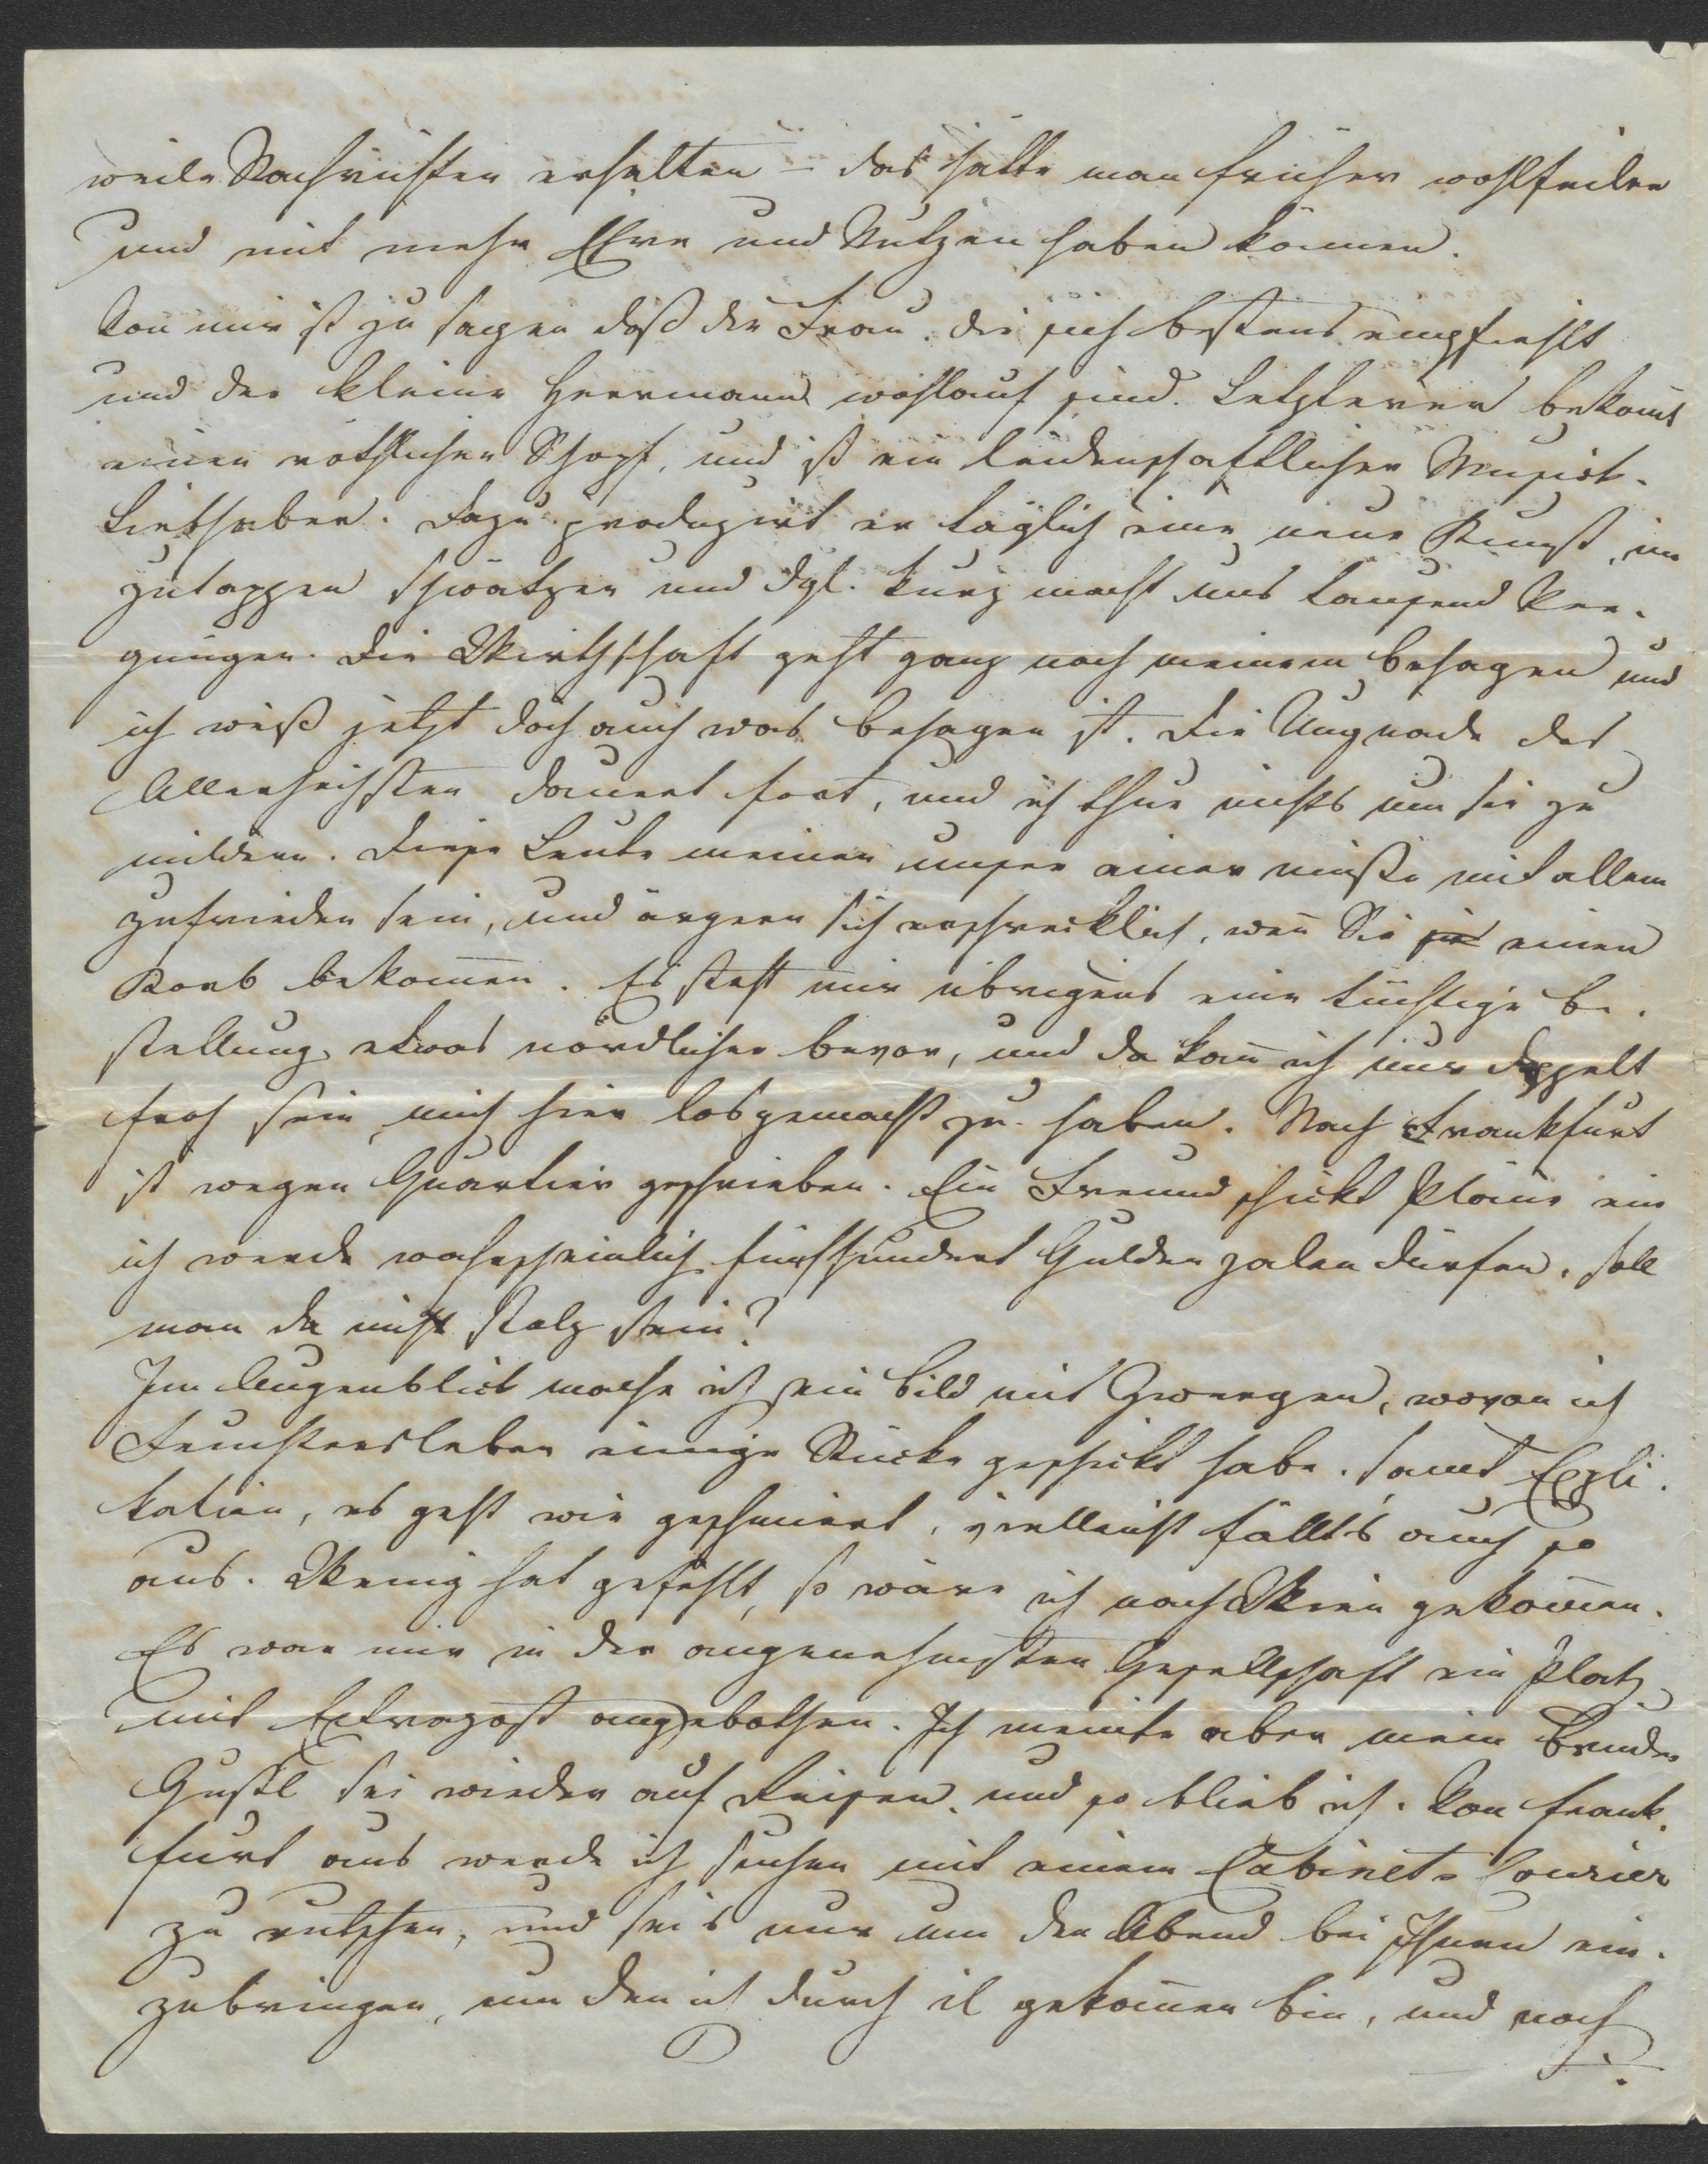 weile Nachrichten erhalten – das hätte man früher wohlfeiler
und mit mehr Ehre und Nutzen haben können.
Von mir ist zu sagen daß die Frau. die sich bestens empfiehlt
und der kleine Herrmann wohlauf sind. Letzterer bekomt
einen röthlichen Schopf, und ist ein leidenschaftlicher Musick-
Liebhaber. Dazu produzirt er täglich eine neue Kunst, im
zutappen schwätzen und dgl. kurz macht uns tausend Ver-
gnügen. Die Wirthschaft geht ganz nach meinem Behagen und
ich weiß jetzt doch auch was Behagen ist. Die Ungnade des
Allerhöchsten dauert fort, und ich thue nichts um sie zu
mildern. Diese Leute meinen unser einer müsse mit allem
zufrieden sein, und ärgern sich erschrecklich, wen̄ Sie einen
Korb bekom̄en. Es steht mir übrigens eine tüchtige Be-
stellung etwas nördlicher bevor, und da kan̄ ich nur doppelt
froh sein, mich hier losgemacht zu haben. Nach Frankfurt
ist wegen Quartier geschrieben. Ein Freund schickt Pläne ein
ich werde wahrscheinlich fünfhundert Gulden zalen dürfen, soll
man da nicht stolz sein?
Im Augenblick mache ich ein Bild mit Zwergen, wovon ich
Feuchtersleben einige Stücke geschickt habe. samt Expli-
kation, es geht wie geschmiert, vielleicht fällt's auch so
aus. Wenig hat gefehlt, so wäre ich nach Wien gekom̄en.
Es war mir in der angenehmsten Gesellschaft ein Platz
mit Extrapost angebothen. Ich meinte aber mein Bruder
Gustl sei wieder auf Reisen. und so blieb ich. Von Frank-
furt aus werde ich suchen mit einem Cabinets Courier
zu rutschen, und sei's nur um den Abend bei Ihnen ein-
zubringen, um den ich durch il gekom̄en bin, und noch